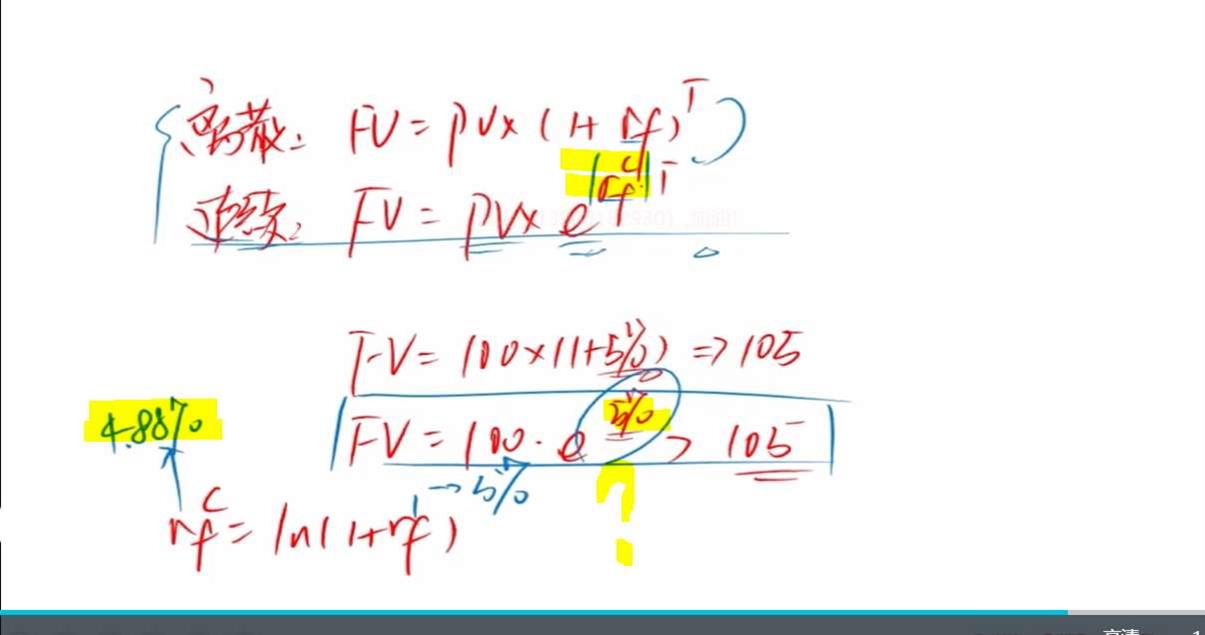 离散: FV = PV × (1 + rf)^T
连续: FV = PV × e^(rf^c · T)
FV = 100 × (1+5%) => 105
FV = 100 · e^5% > 105
?
4.88%
→ 5%
rf^c = ln(1 + rf)
高清